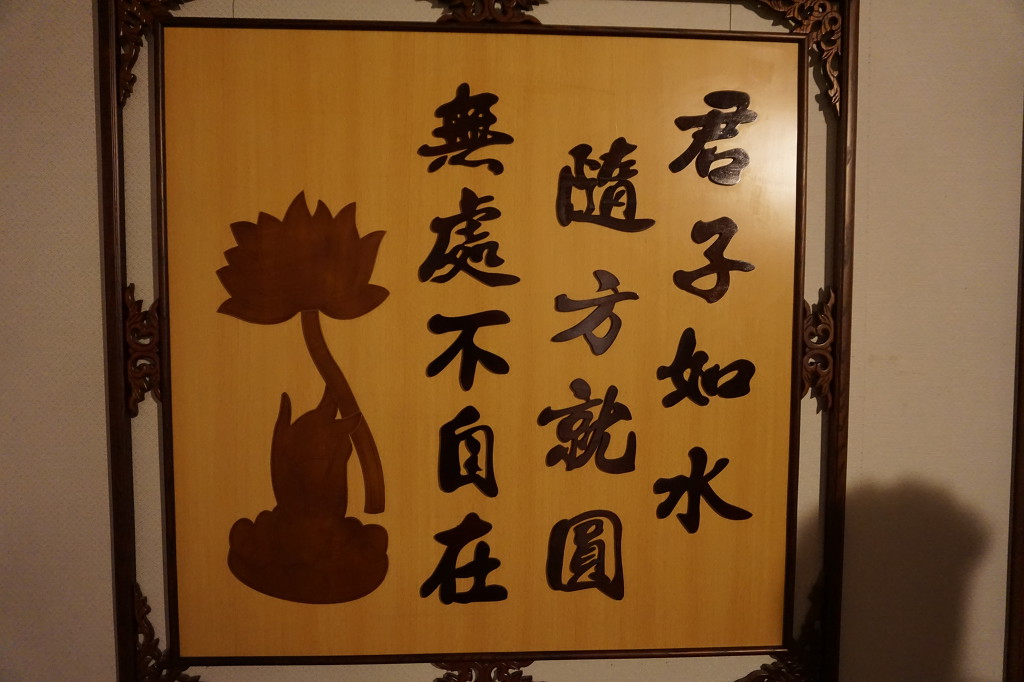 君子如水
隨方就圓
無處不自在